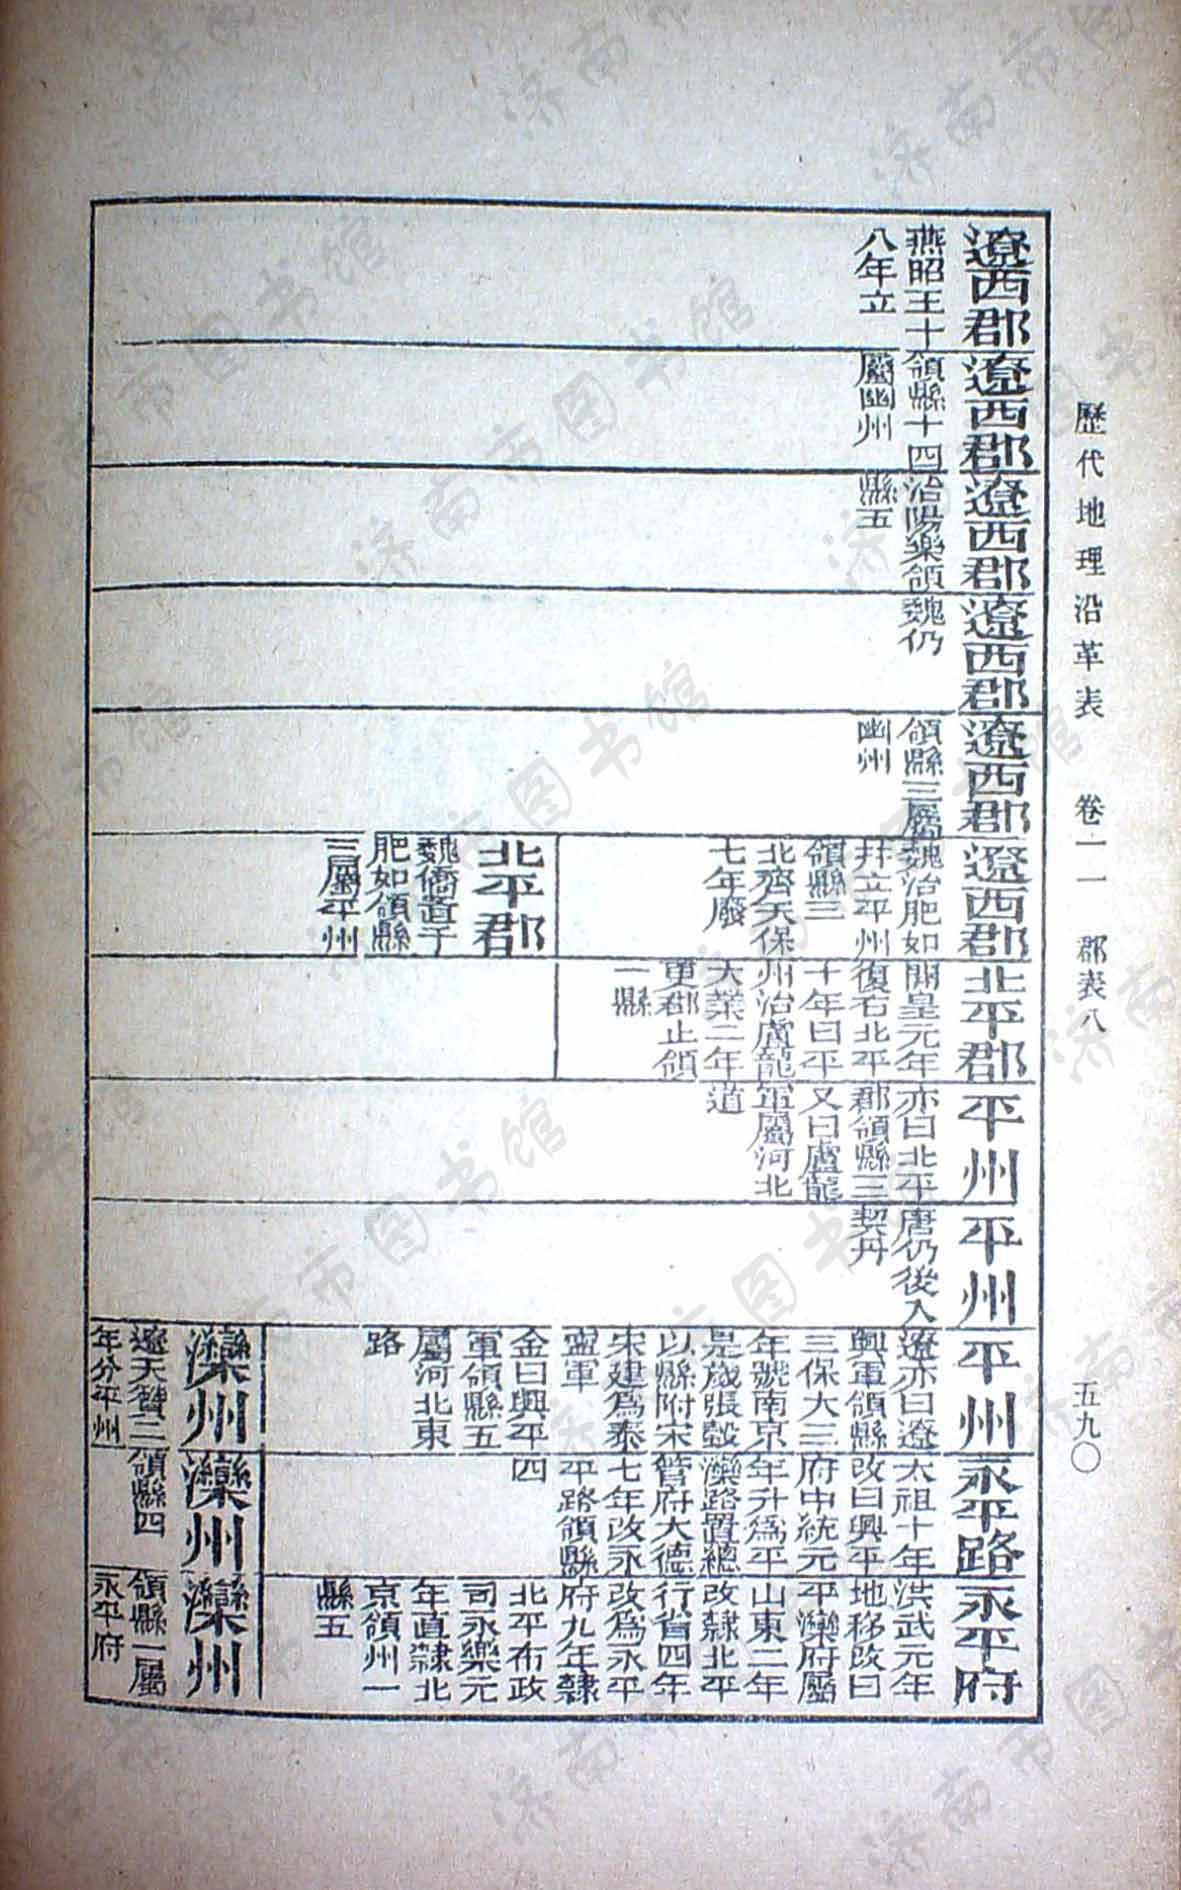 歷代地理沿革表 卷二一 郡表八 五九〇
遼西郡
燕昭王十
八年立
遼西郡
領縣十四
屬幽州
遼西郡
治陽樂領
縣五
遼西郡
魏仍
遼西郡
領縣三屬
幽州
遼西郡
魏治肥如
并立平州
領縣三
北齊天保
七年廢
北平郡
魏僑置于
肥如領縣
二屬平州
北平郡
開皇元年
復右北平
十年曰平
州治盧龍
大業二年
更郡止領
一縣
平州
亦曰北平
郡領縣三
又曰盧龍
軍屬河北
道
平州
唐仍後入
契丹
平州
遼亦曰遼
興軍領縣
三保大三
年號南京
是歲張瑴
以縣附宋
宋建爲泰
寧軍
金曰興平
軍領縣五
屬河北東
路
灤州
遼天贊二
年分平州
永平路
太祖十年
改曰興平
府中統元
年升爲平
灤路置總
管府大德
七年改永
平路領縣
四
灤州
領縣四
永平府
洪武元年
地移改曰
平灤府屬
山東二年
改隸北平
行省四年
改爲永平
府九年隸
北平布政
司永樂元
年直隸北
京領州一
縣五
灤州
領縣一屬
永平府
济南市图书馆